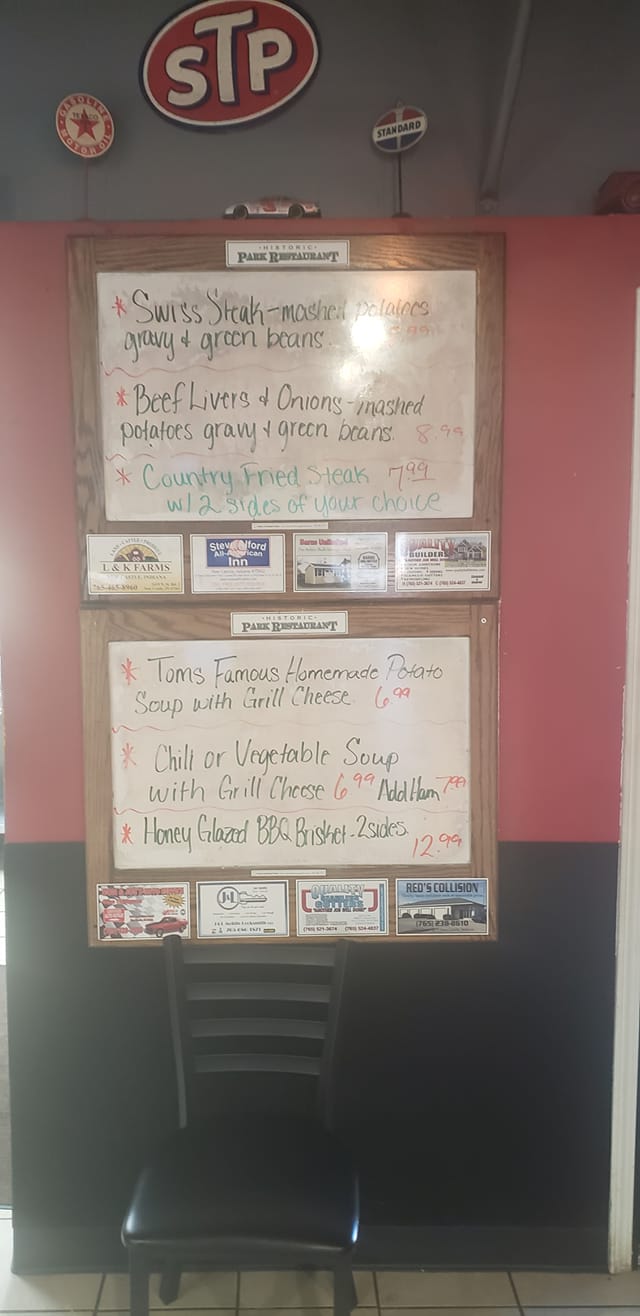 STP
GASOLINE
TEXACO
MOTOR OIL
STANDARD
·HISTORIC·
PARK RESTAURANT
* Swiss Steak - mashed potatoes
gravy & green beans. 8.99
* Beef Livers & Onions - mashed
potatoes gravy & green beans. 8.99
* Country Fried Steak 7.99
w/ 2 sides of your choice
L & K FARMS
765-465-8960
All-American
Inn
Barns Unlimited
QUALITY
BUILDERS
·HISTORIC·
PARK RESTAURANT
* Toms Famous Homemade Potato
Soup with Grill Cheese. 6.99
* Chili or Vegetable Soup
with Grill Cheese 6.99 Add Ham 7.99
* Honey Glazed BBQ Brisket - 2 sides.
12.99
J&L
QUALITY
SEAMLESS
GUTTERS
"ANOTHER JOB WELL DONE"
(765) 521-3674 (765) 524-4837
RED'S COLLISION